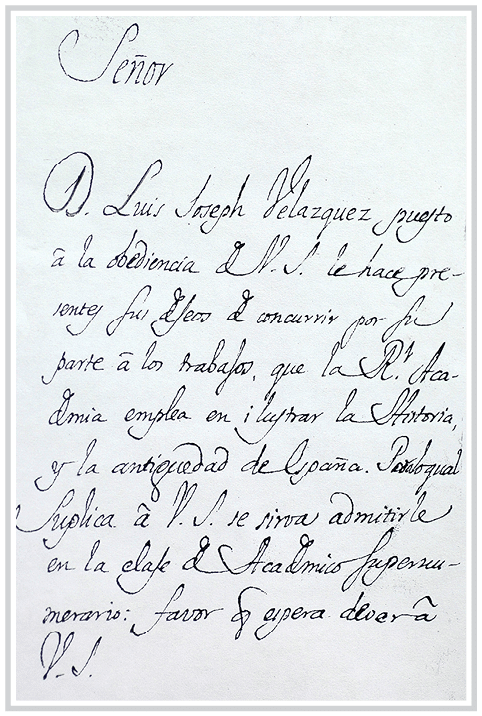 Señor
D. Luis Joseph Velazquez puesto
â la obediencia de V. S. le hace pre-
sentes sus deseos de concurrir por su
parte â los trabajos, que la Rl. Aca-
demia emplea en ilustrar la Historia,
y la antiguedad de España. Por lo qual
Suplica â V. S. se sirva admitirle
en la clase de Academico supernu-
merario: favor q espera dever â
V. S.